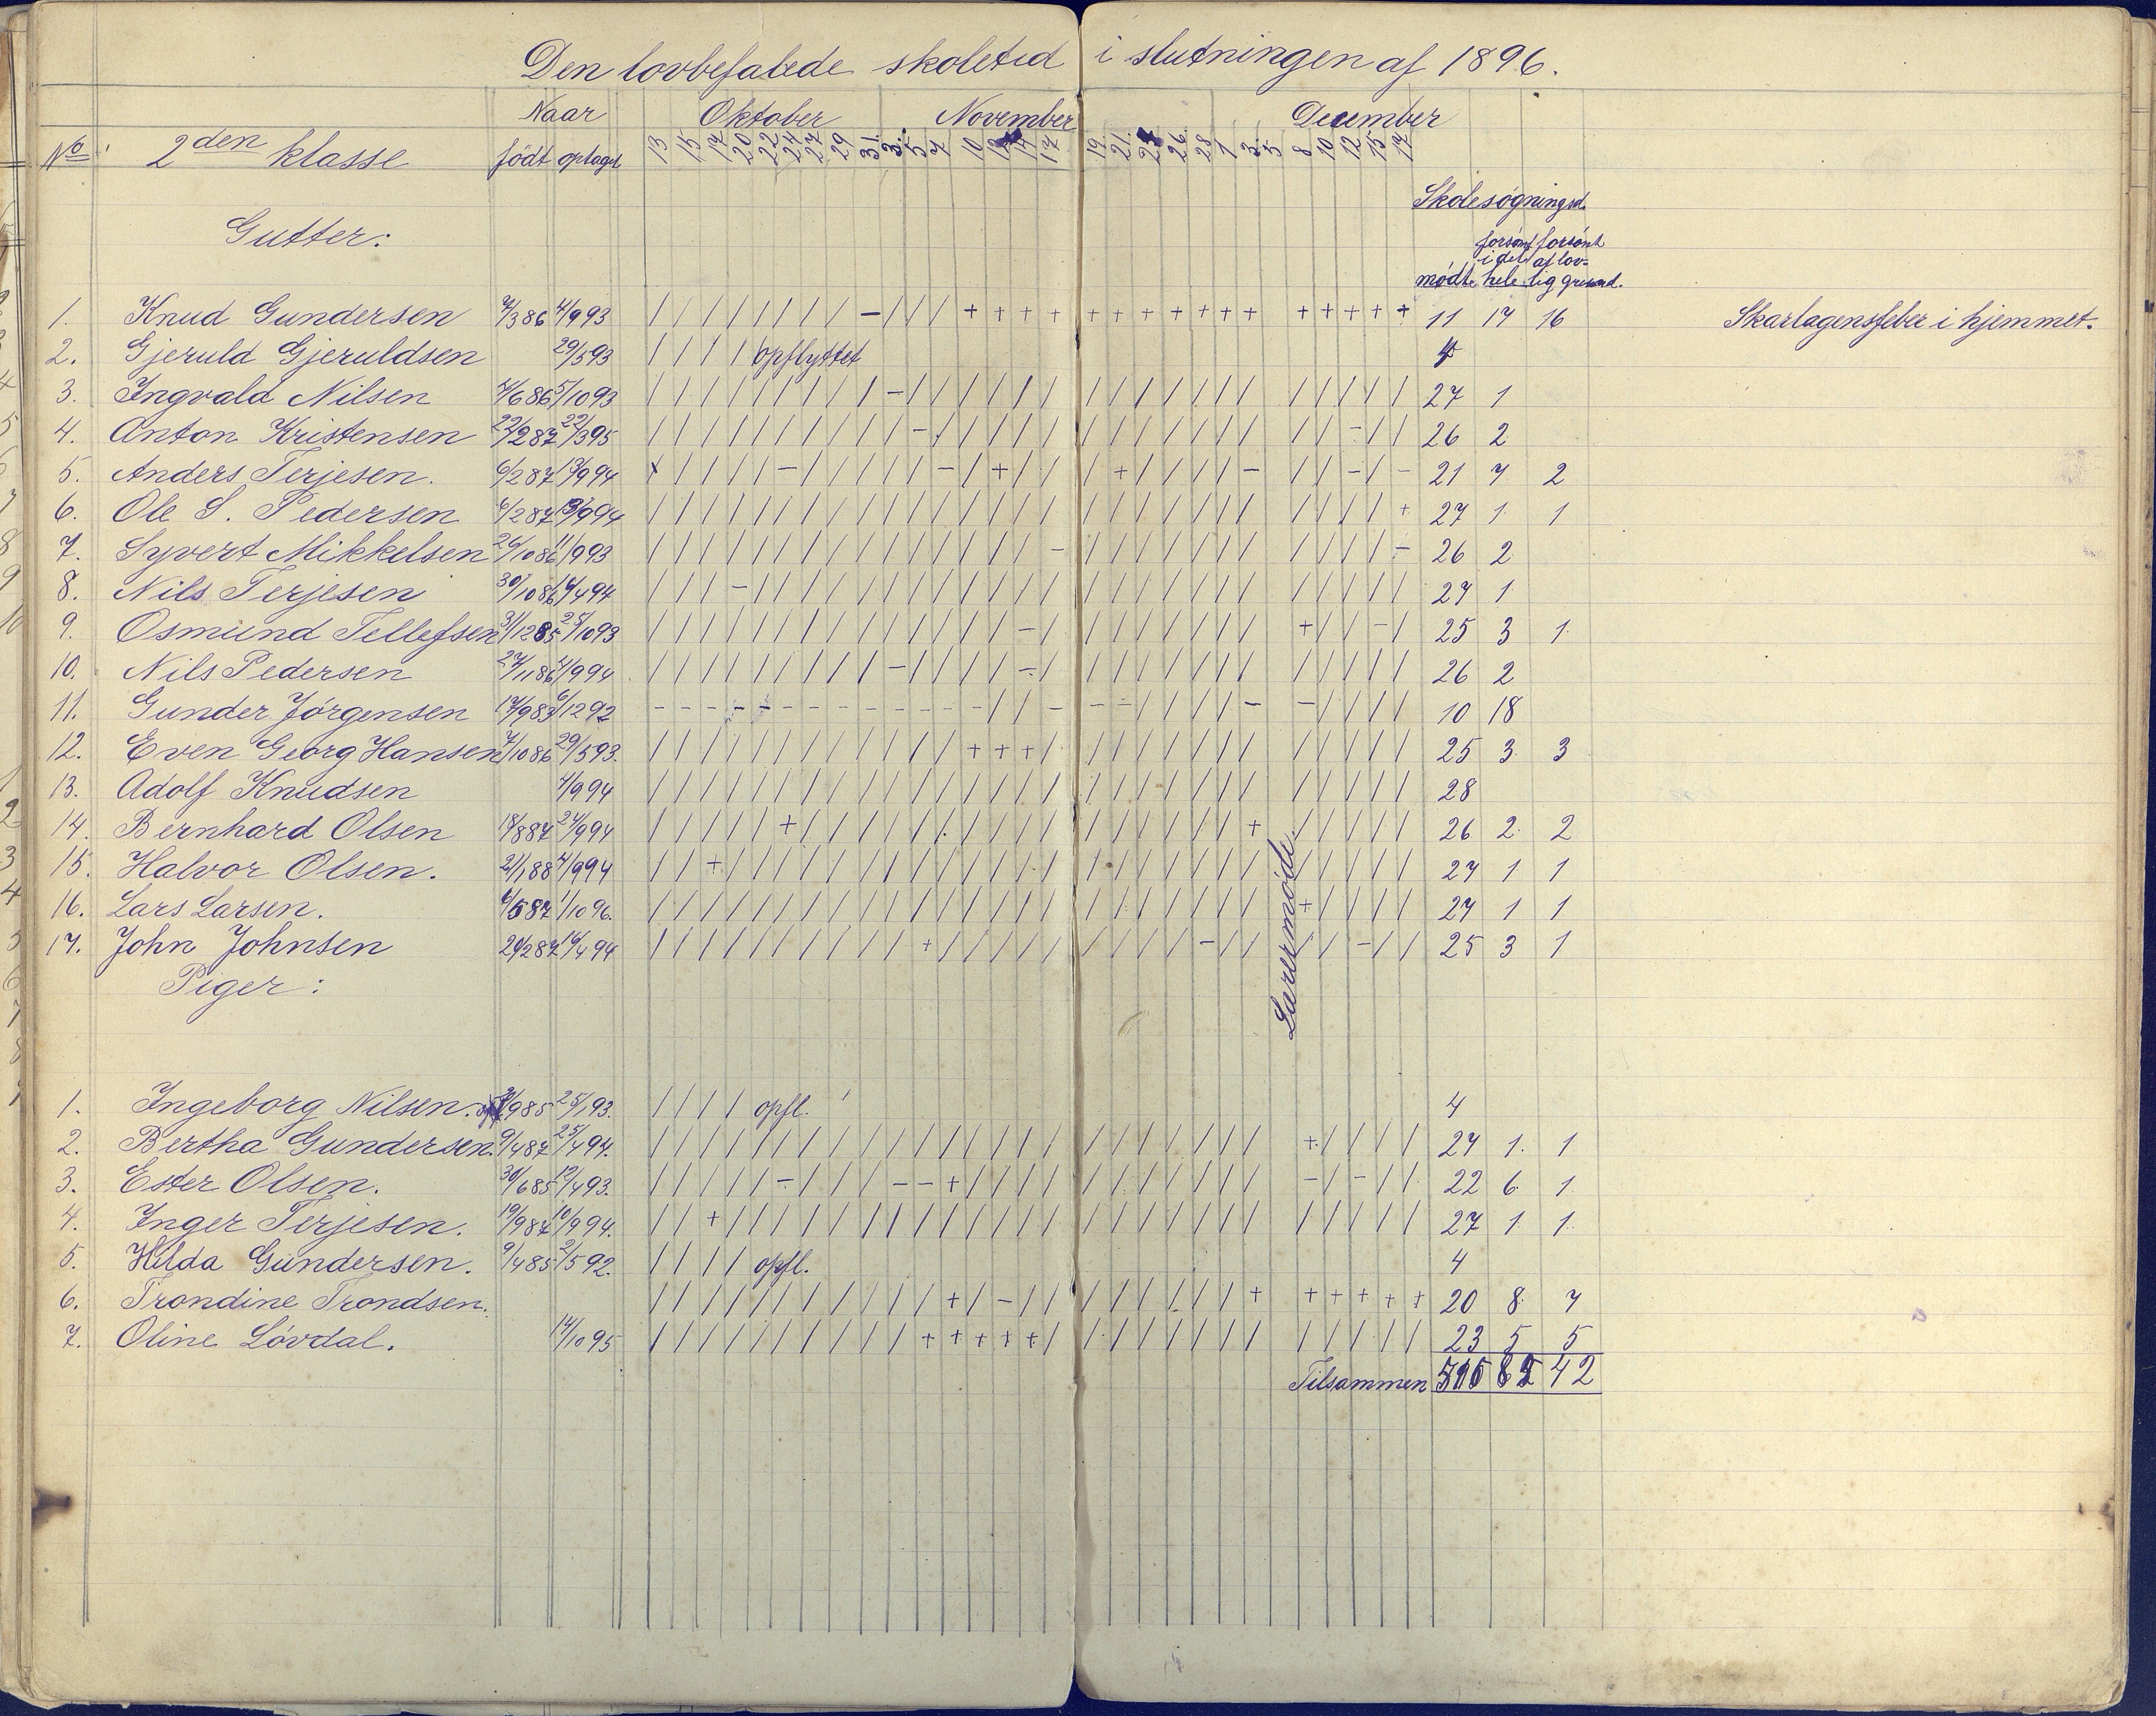 Den lovbefalede skoletid i slutningen af 1896.
Naar Oktober November December
No 2den klasse født optaget 13 15 17 20 22 24 27 29 31. 3. 5 7 10 12 14 17 19. 21. 24 26. 28 1 3. 5 8 10 12 15 17
Skolesøgningsd.
Gutter:
forsømt forsømt
i det af lov-
mødte hele lig grund.
1. Knud Gundersen 7/3 86 4/9 93 / / / / / / / / - / / / + + + + + + + + + + + + + + + + 11 17 16 Skarlagensfeber i hjemmet.
2. Gjeruld Gjeruldsen 29/5 93 / / / / opflyttet 4
3. Ingvald Nilsen 7/6 86 5/10 93 / / / / / / / / / - / / / / / / / / / / / / / / / / / / 27 1
4. Anton Kristensen 22/2 87 22/3 95 / / / / / / / / / / - / / / / / / / / / / / / / / - / / 26 2
5. Anders Terjesen. 6/2 87 13/9 94 x / / / / - / / / / / - / + / / / + / / / / - / / - / - 21 7 2
6. Ole S. Pedersen 6/2 87 13/9 94 / / / / / / / / / / / / / / / / / / / / / / / / / / / + 27 1 1
7. Syvert Mikkelsen 26/10 86 11/9 93 / / / / / / / / / / / / / / / - / / / / / / / / / / / - 26 2
8. Nils Terjesen 30/10 86 16/4 94 / / / - / / / / / / / / / / / / / / / / / / / / / / / / 27 1
9. Osmund Tellefsen 31/12 85 25/10 93 / / / / / / / / / / / / / / - / / / / / / / / + / / - / 25 3 1.
10. Nils Pedersen 27/11 86 4/9 94 / / / / / / / / / - / / / / - / / / / / / / / / / / / / 26 2
11. Gunder Jörgensen 17/9 83 6/12 92 - - - - - - - - - - - - - / / - - - / / / / - - / / / / 10 18
12. Even Georg Hansen 7/10 86 29/5 93. / / / / / / / / / / / / + + + / / / / / / / / / / / / / 25 3 3
13. Adolf Knudsen 4/9 94 / / / / / / / / / / / / / / / / / / / / / / / / / / / / 28
14. Bernhard Olsen 18/8 87 24/9 94 / / / / / + / / / / / / / / / / / / / / / / + / / / / / 26 2. 2
15. Halvor Olsen. 21/1 88 4/9 94 / / + / / / / / / / / / / / / / / / / / / / / / / / / / 27 1 1
16. Lars Larsen. 6/5 87 1/10 96. / / / / / / / / / / / / / / / / / / / / / / / + / / / / 27 1 1
17. John Johnsen 20/2 87 16/4 94 / / / / / / / / / / + / / / / / / / / / - / / / / - / / 25 3 1
Lærermøde.
Piger:
1. Ingeborg Nilsen. 7/9 85 25/1 93. / / / / opfl. 4
2. Bertha Gundersen. 9/4 87 25/4 94. / / / / / / / / / / / / / / / / / / / / / / / + / / / / 27 1. 1
3. Ester Olsen. 30/6 85 12/4 93. / / / / / - / / / - - + / / / / / / / / / / / - / - / / 22 6 1
4. Inger Terjesen. 19/9 87 10/9 94. / / + / / / / / / / / / / / / / / / / / / / / / / / / / 27 1 1.
5. Hilda Gundersen. 9/4 85 2/5 92. / / / / opfl. 4
6. Trondine Trondsen. / / / / / / / / / / / + / - / / / / / / / / + + + + + + 20 8. 7
7. Oline Lövdal. 14/10 95 / / / / / / / / / / + + + + + / / / / / / / / / / / / / 23 5 5
Tilsammen 42